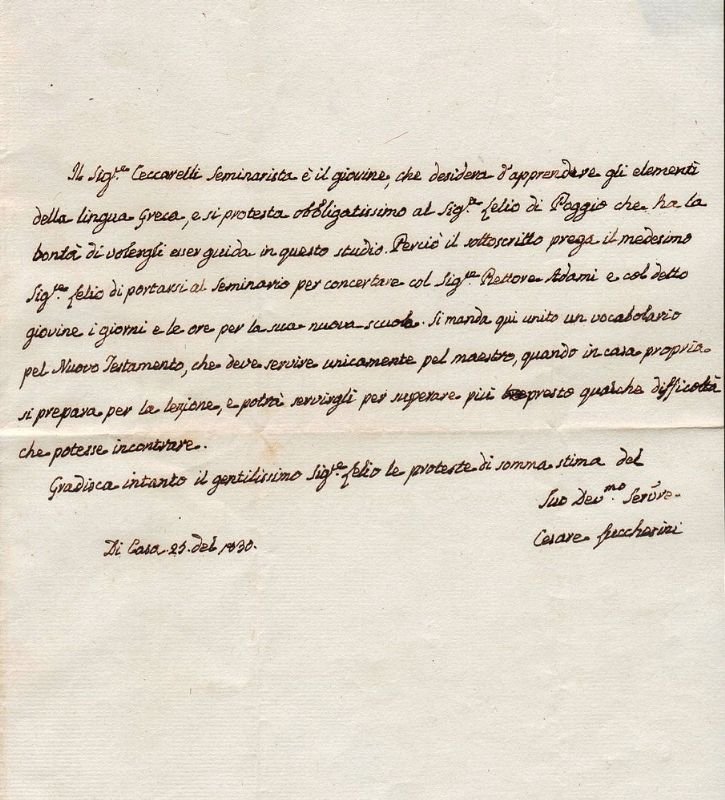 Il Sig.re Ceccarelli Seminarista è il giovine, che desidera d'apprendere gli elementi
della lingua Greca, e si protesta obbligatissimo al Sig.re felio di Poggio che ha la
bontà di volergli esser guida in questo studio. Perciò il sottoscritto prega il medesimo
Sig.re felio di portarsi al Seminario per concertare col Sig.re Rettore Adami e col detto
giovine i giorni e le ore per la sua nuova scuola. Si manda qui unito un vocabolario
pel Nuovo Testamento, che deve servire unicamente pel maestro, quando in casa propria
si prepara per la lezione, e potrà servirgli per superare più presto qualche difficoltà
che potesse incontrare.
Gradisca intanto il gentilissimo Sig.re felio le proteste di somma stima del
Suo Dev.mo Servre
Cesare Lucchesini
Di Casa 25. del 1830.